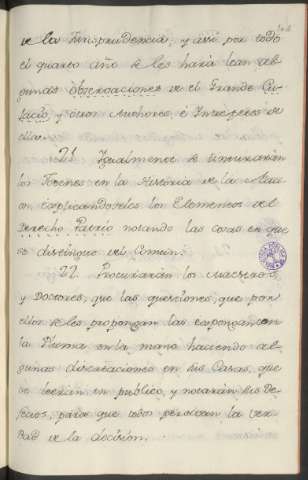 de la Jurisprudencia, y assi por todo
el quarto año se les hará lean al-
gunas observaciones de el Grande Cu-
jacio, y otros Authores è Interpretes de
ella.
21. Igualmente se instruirán
los Jovenes en la Historia de la
con explicandoseles los Elementos del
Derecho Patrio notando las cosas en que
se distingue del Comun.
22. Procurarán los Maestros
y Doctores, que las questiones, que por
ellos se les propongan las expongan con
la Pluma en la mano haciendo al-
gunas disertaciones en sus Casas, que
se leerán en publico, y notarán sus De-
fectos, para que todos perciban la ver-
dad de la decision.